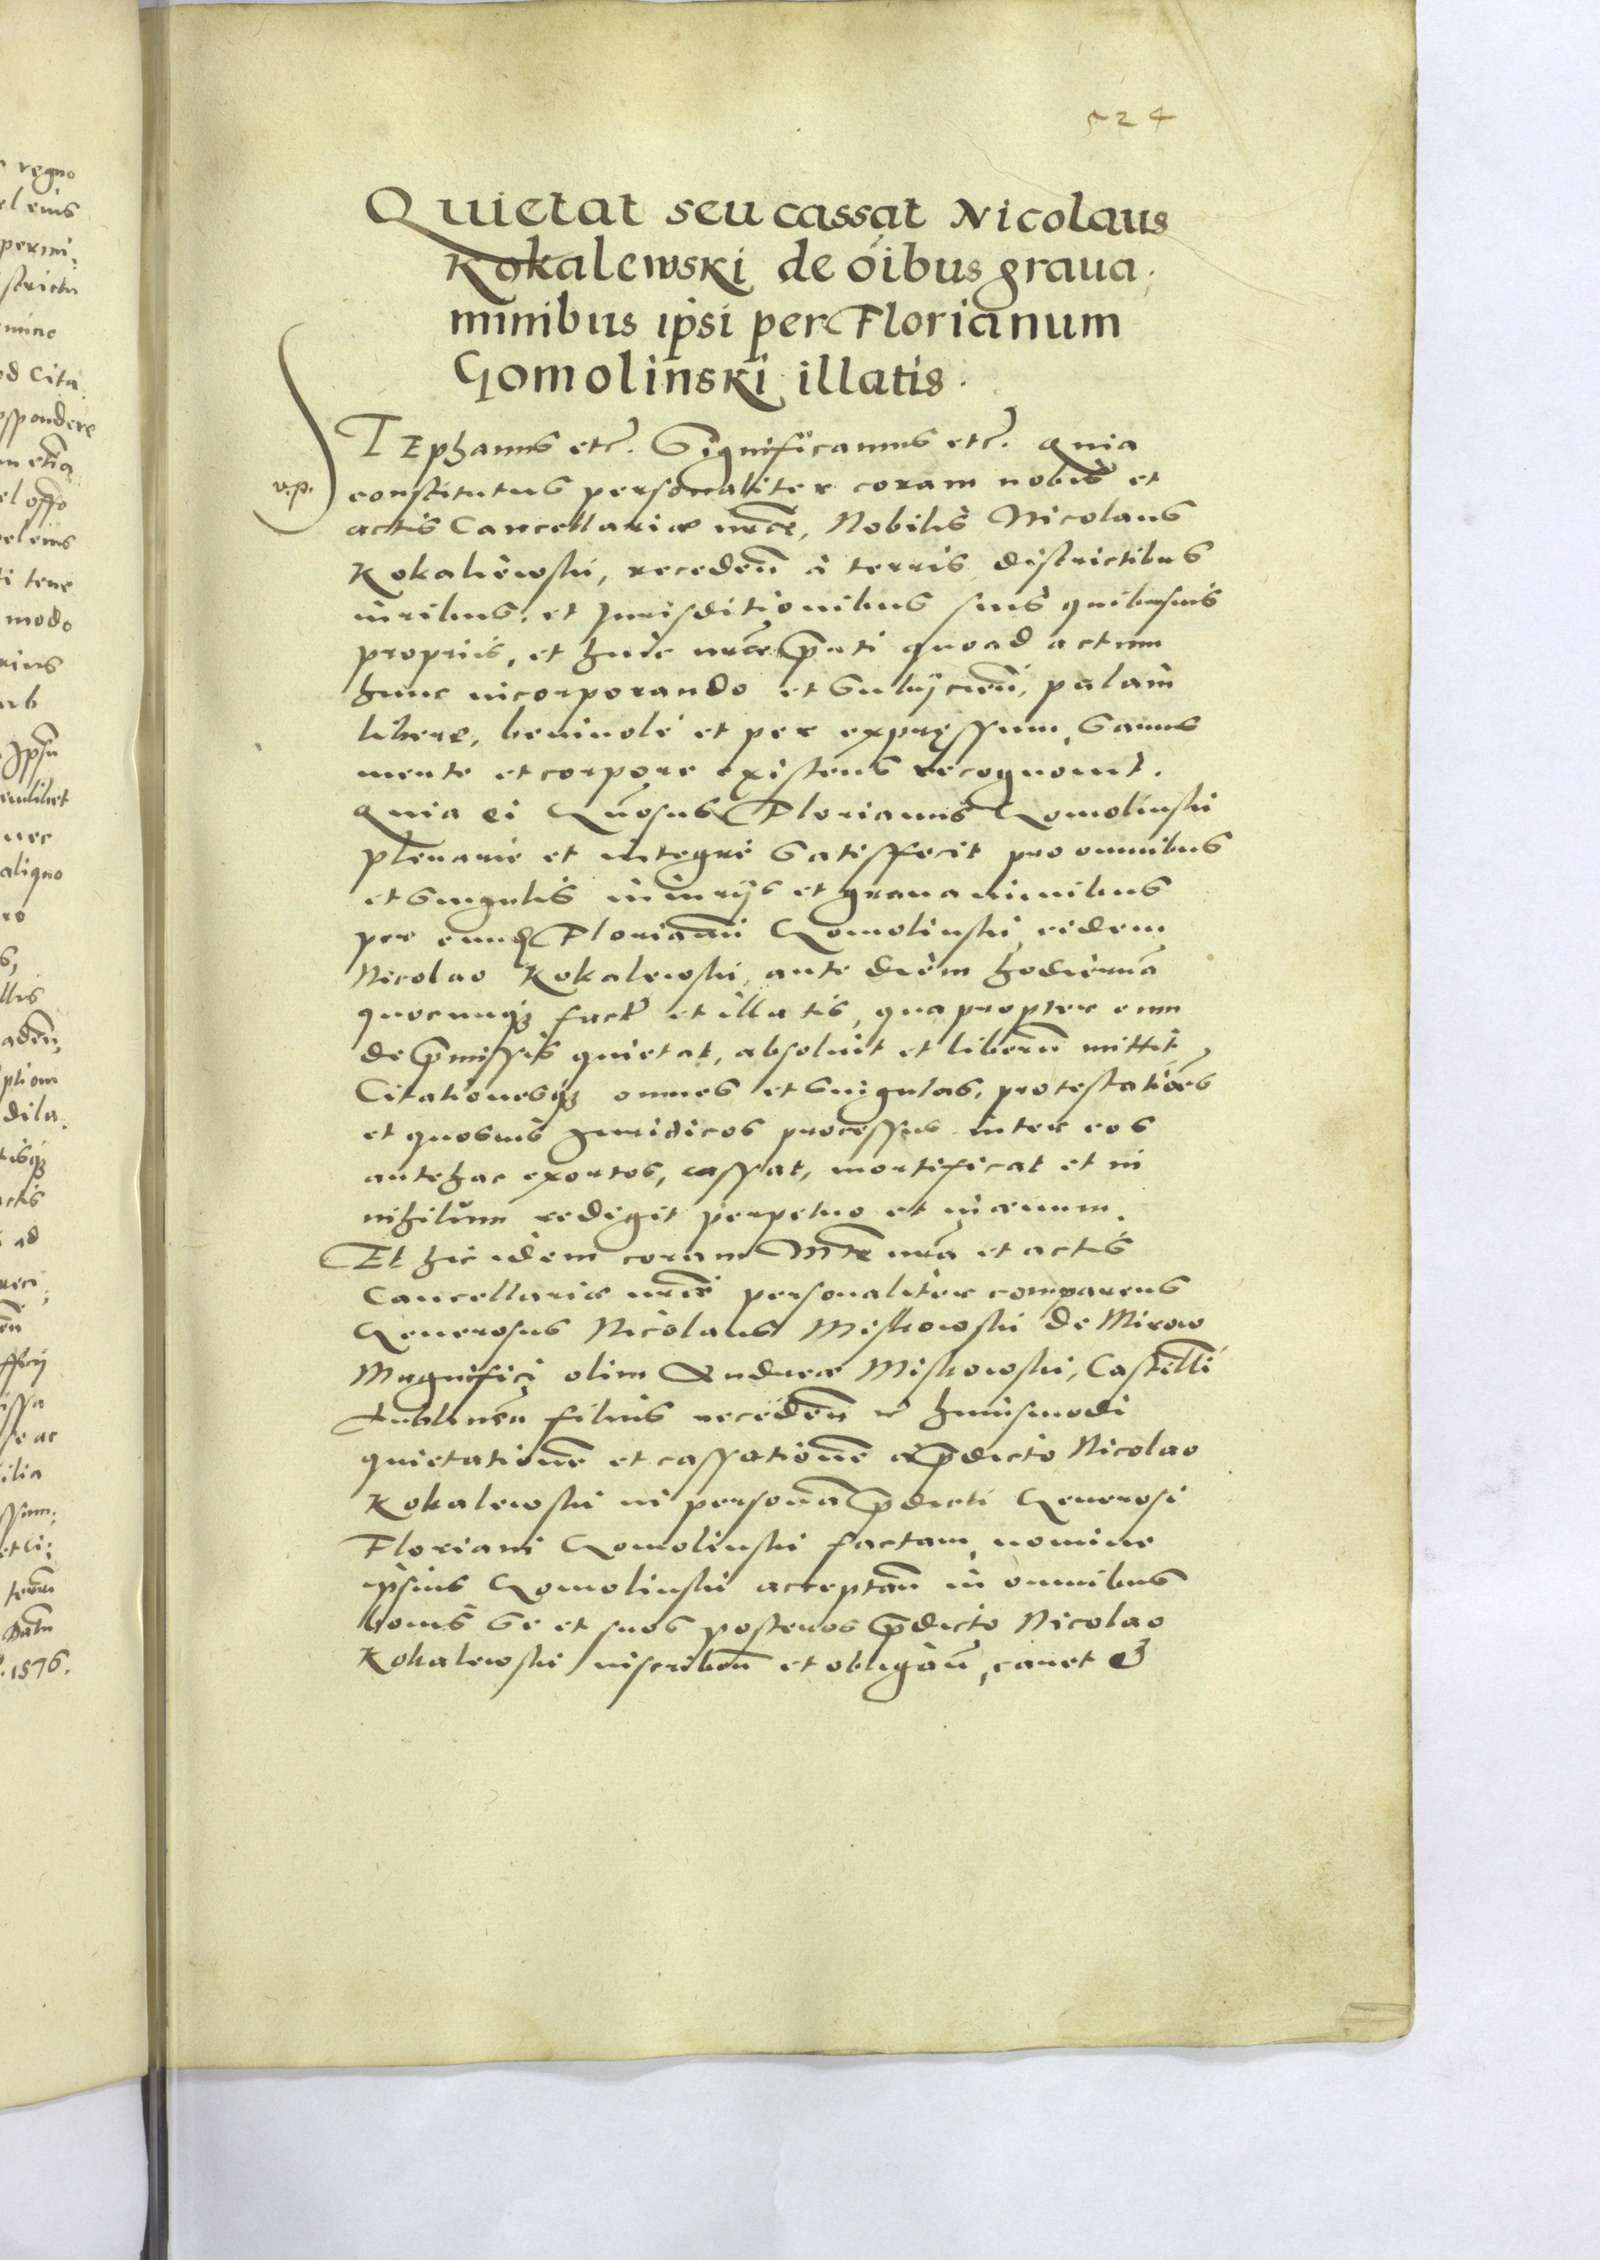 524
Quietat seu cassat Nicolaus
Kokalewski de oı̃bus graua,
minibus ipsi per Florianum
Gomolinski illatis.
STEphanus etc. Significamus etc. Quia
v.p.
constitutus personaliter coram nobis et
actis Cancellariae nr̃ae, Nobilis Nicolaus
Kokalewski, receden̄ à terris districtibus
iuribus, et Jurisditionibus suis quibusuis
proprijs, et huic nr̃ae p̄nti quoad actum
hunc incorporando et Subijcien̄, palam
libere, beniuole et per expressum, Sanus
mente et corpore existens recognouit.
Quia ei Gn̄osus Florianus Gomolinski
plenarie et integre Satisffecit pro omnibus
et Singulis iniurijs et grauaminibus
per eund̄ Florianū Gomolinski eidem
Nicolao Kokalewski, ante diem hodiernā
quocunq̃ fact̃ et illatis, quapropter eum
de p̄missis quietat, absoluit et liberū mittit
Citationesq̃ omnes et Singulas, protestatiōes
et quosuis Juridicos processus inter eos
antehac exortos, cassat, mortificat et in
nihilum redigit perpetuo et in aeuum.
Et hic idem coram Mt̃e nr̃a et actis
Cancellariae nr̃ae personaliter comparens
Generosus Nicolaus Miskowski de Mirow
Magnifici olim Andreae Miskowski, Castellĩ
Lublinen̄ filius receden̄ ut huiusmodi
quietationē et cassationē à p̄dicto Nicolao
Kokalewski in personā p̄dicti Generosi
Floriani Gomolinski factam, nomine
ipsius Gomolinski acceptan̄ in omnibus
bonis Se et suos posteros p̄dicto Nicolao
Kokalewski inscriben̄ et obligan̄, cauet &